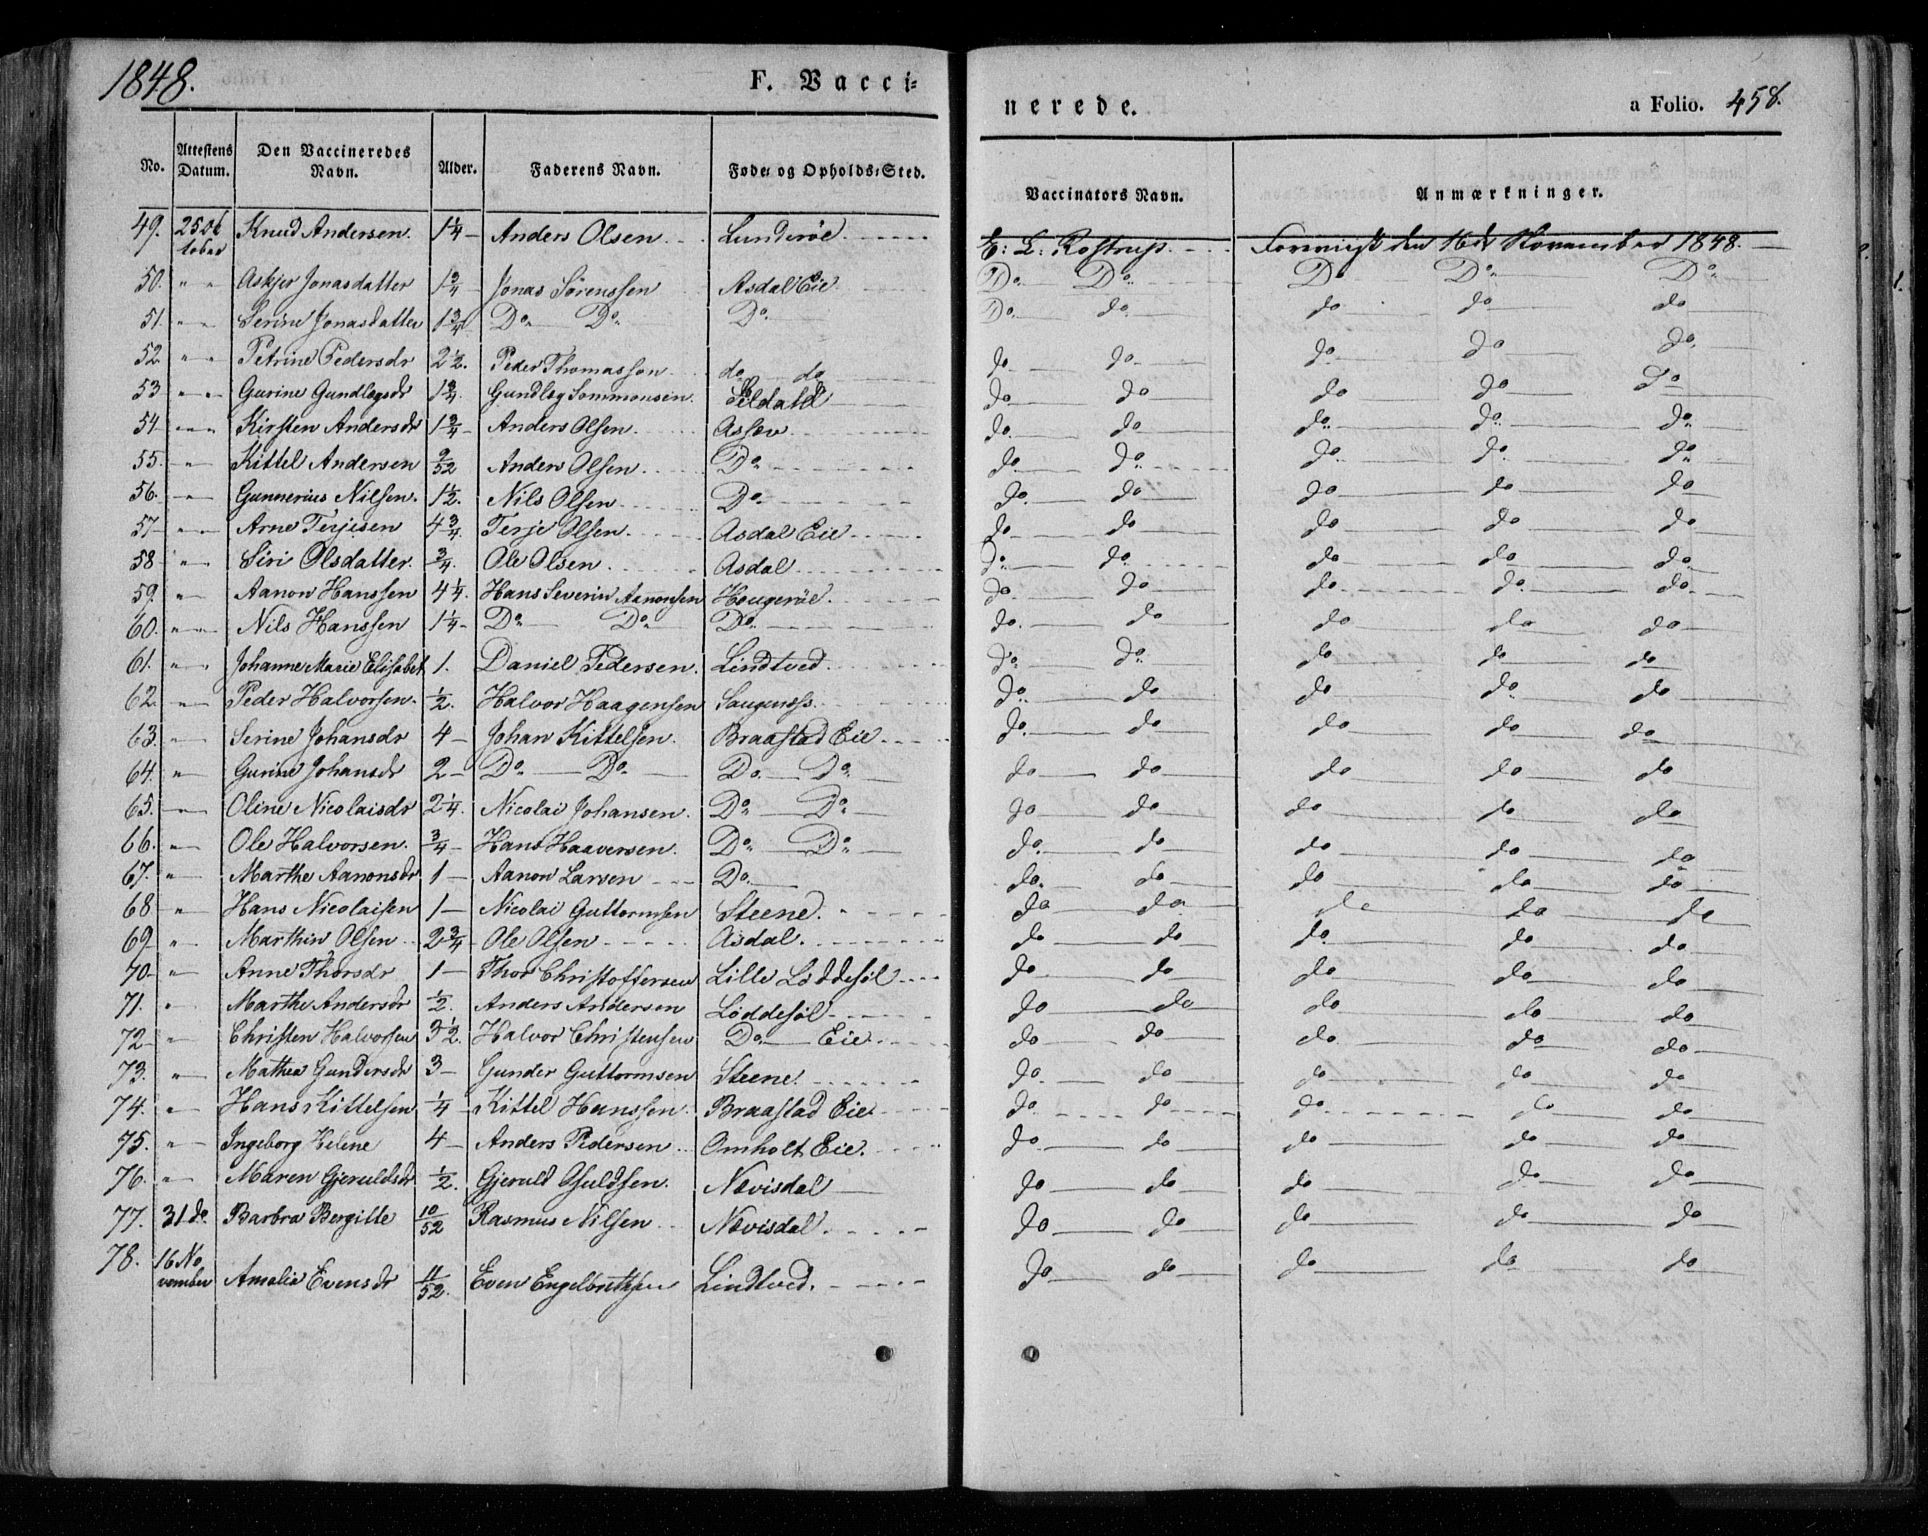 1848.
F. Vacci-
nerede.
a Folio. 458.
No. Attestens Datum. Den Vaccineredes Navn. Alder. Faderens Navn. Føde- og Opholds-Sted. Vaccinators Navn. Anmærkninger.
49. 25 October Knud Andersen. 1¼ - Anders Olsen Lunderöe E: L: Rostrup. den 16de November 1848.
50. " " Askjer Jonasdatter 1¾ Jonas Sörenssen Asdal Eie Do Do Do Do Do
51. " " Serine Jonasdatter 1¾ Do Do Do Do do do do do
52. " " Petrine Pedersdr 2½. Peder Thomassen do do do do do do do
53 " " Gurine Gundlegsdr 1¾. Gundleg Sommonsen. do do do do do
54 " " Kirsten Andersdr 1¾ - Anders Olsen. Assev do do do do do
55. " Kittel Andersen 9/52 Anders Olsen. Do do do do do do
56. " Gunnerius Nilsen. 1½. Nils Olsen Do do do do do do
57 " " Arne Terjesen 4¾. Terje Olsen. Asdal Eie do do do do do
58 " Siri Olsdatter. ¾. Ole Olsen. Asdal do do do do do
59. " Aanon Hanssen 4¼. Hans Severin Aanonsen Hougeröe. do do do do do
60. " " Nils Hanssen 1¼ - Do Do Do do do do do do
61. " " Johanne Marie Elisabet 1. Daniel Pedersen. Lindtved. do do do do do
62. " Peder Halvorsen. ½. Halvor Haagensen Saugenæss. do do do do do
63. " Serine Johansdr 4 - Johan Kittelsen. Braastad Eie do do do do do
64. " Gurine Johansdr 2 - Do Do Do do do do do do do
65. " Oline Nicolaisdr 2¼. Nicolai Johansen. Do Do do do do do do
66. " Ole Halvorsen. ¾ - Hans Haaversen. Do Do do do do do do
67. " Marthe Aanonsdr 1 - Aanon Larsen Do do do do do do
68 " Hans Nicolaisen 1 - Nicolai Guttormsen Steene. do do do do do
69 " Marthin Olsen 2¾ - Ole Olsen Asdal. do do do do do
70 " Anne Thorsdr 1 - Thor Christoffersen Lille Löddesöl do do do do do
71. " Marthe Andersdr ½. Anders Andersen Löddesöl do do do do do
72 " Christen Halvorsen 3½. Halvor Christensen Do Eie. do do do do do
73. " Mathea Gundersdr 3 - Gunder Guttormsen Steene. do do do do do
74. " Hans Kittelsen ¼ - Kittel Hanssen Braastad Eie do do do do do
75. " Ingeborg Helene 4 - Anders Pedersen Omholt Eie. do do do do do
76. " Maren Gjeruldsdr ½. Gjeruld Osuldsen. Nævisdal do do do do do
77. 31 do. Barbra Bergitte 10/52 Rasmus Nilsen Nævisdal. do do do do do
78. 16 November Amalia Evensdr 11/52. Even Engelbrethsen Lindtved. do do do do do